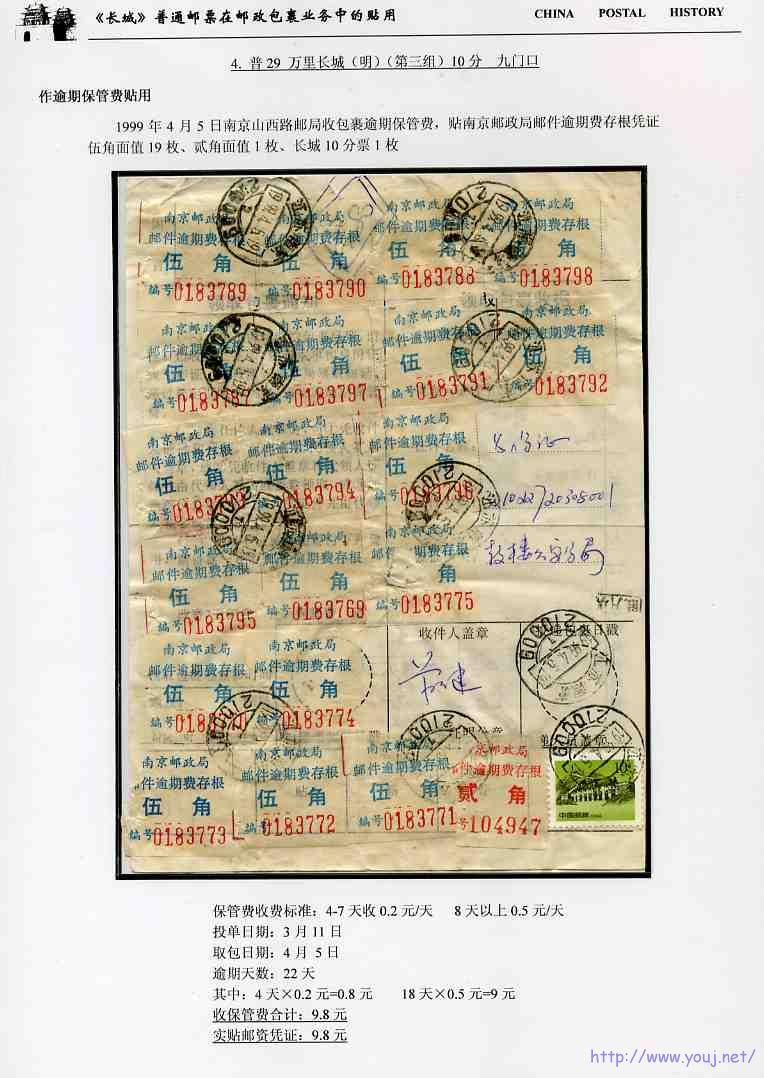 《长城》普通邮票在邮政包裹业务中的贴用 CHINA POSTAL HISTORY
4. 普29 万里长城（明）（第三组）10分 九门口
作逾期保管费贴用
1999 年 4 月 5 日南京山西路邮局收包裹逾期保管费，贴南京邮政局邮件逾期费存根凭证
伍角面值 19 枚、贰角面值 1 枚、长城 10 分票 1 枚
南京邮政局 南京邮政局 南京邮政局 南京邮政局
邮件逾期费存根 邮件逾期费存根 邮件逾期费存根 邮件逾期费存根
伍角 伍角 伍角 伍角
编号0183789 编号0183790 编号0183788 编号0183798
南京邮政局 南京邮政局 南京邮政局 南京邮政局
邮件逾期费存根 邮件逾期费存根 邮件逾期费存根 邮件逾期费存根
伍角 伍角 伍角 伍角
编号0183787 编号0183797 编号0183791 编号0183792
南京邮政局 南京邮政局 南京邮政局
邮件逾期费存根 邮件逾期费存根 邮件逾期费存根
伍角 伍角 伍角
编号 编号0183794 编号0183796
南京邮政局 南京邮政局 南京邮政局
邮件逾期费存根 邮件逾期费存根 邮件逾期费存根
伍角 伍角 角
编号0183795 编号0183769 编号0183775
鼓楼公安分局
收件人盖章
南京邮政局 南京邮政局
邮件逾期费存根 邮件逾期费存根
伍角 伍角
编号 编号0183774
南京邮政局 南京邮政局 南京邮政局 南京邮政局
邮件逾期费存根 邮件逾期费存根 邮件逾期费存根 邮件逾期费存根
伍角 伍角 伍角 贰角
编号0183773 编号0183772 编号0183771 号104947
210009
10分
中国邮政
保管费收费标准：4-7 天收 0.2 元/天 8 天以上 0.5 元/天
投单日期：3 月 11 日
取包日期：4 月 5 日
逾期天数：22 天
其中：4 天×0.2 元=0.8 元 18 天×0.5 元=9 元
收保管费合计：9.8 元
实贴邮资凭证：9.8 元
http://www.youj.net/